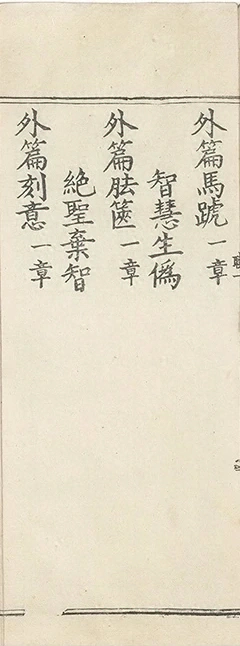 外篇馬蹏一章
智慧生僞
外篇胠篋一章
絶聖棄智
外篇刻意一章